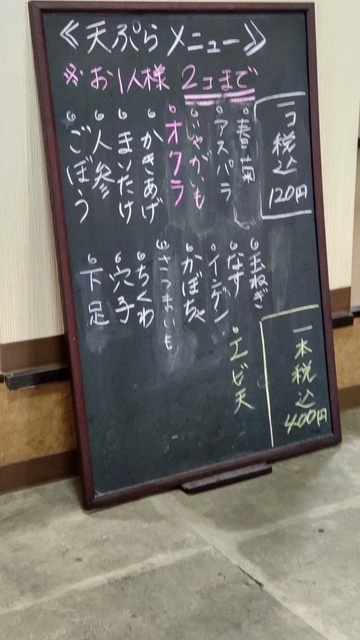 《天ぷらメニュー》
※お1人様 2コまで
一コ税込120円
・春菊
・アスパラ
・じゃがいも
・オクラ
・かきあげ
・まいたけ
・人参
・ごぼう
・玉ねぎ
・なす
・インゲン
・かぼちゃ
・さつまいも
・ちくわ
・穴子
・下足
一本税込400円
・エビ天